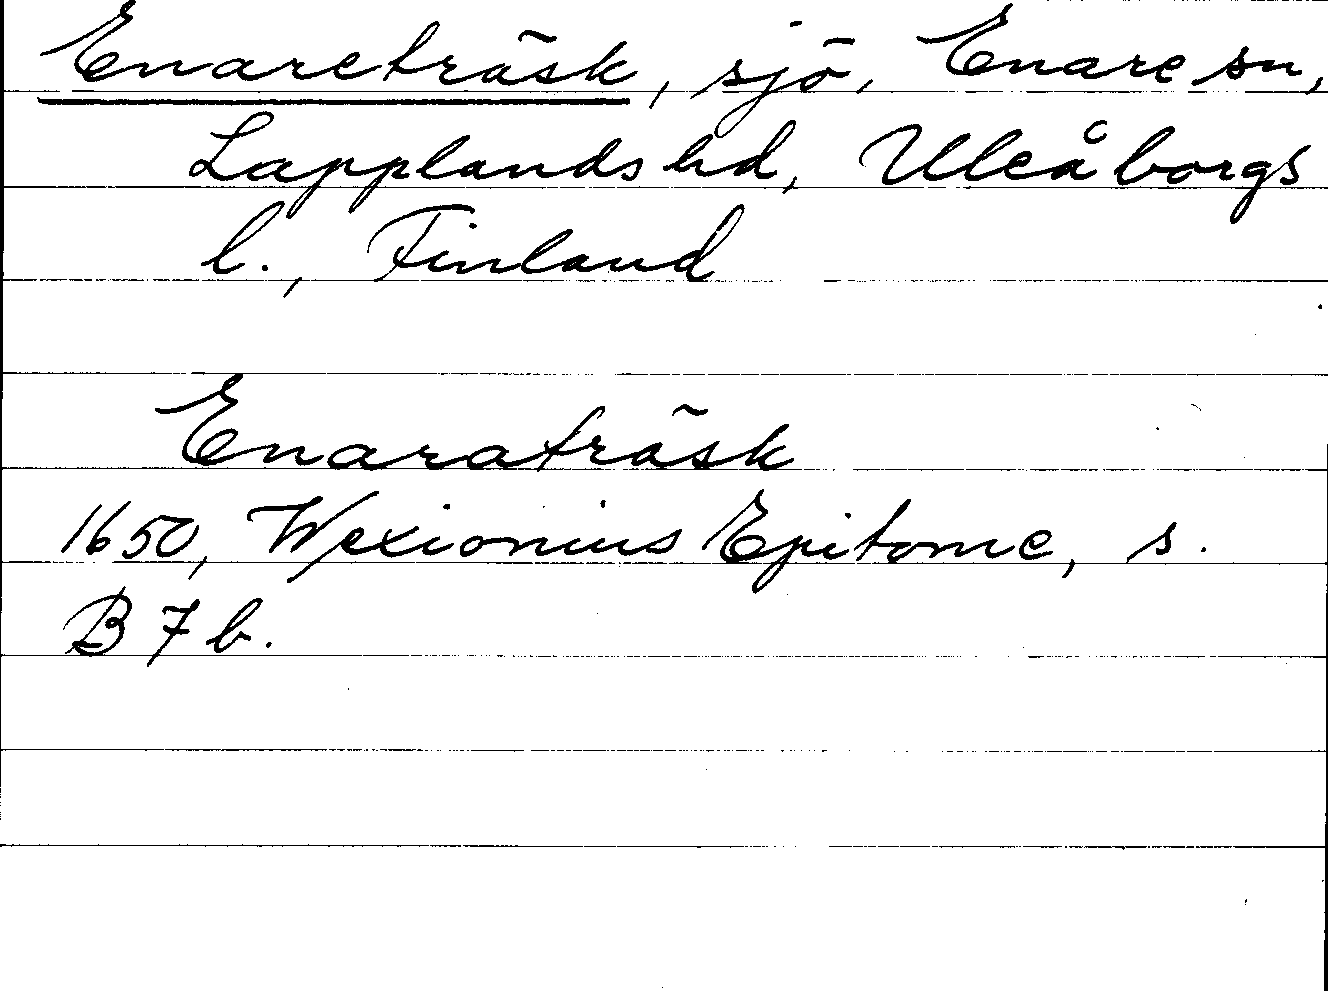 Enareträsk, sjö, Enare sn,
Lapplands hd, Uleåborgs
l., Finland
Enaraträsk
1650, Wexionius Epitome, s.
B 7 b.